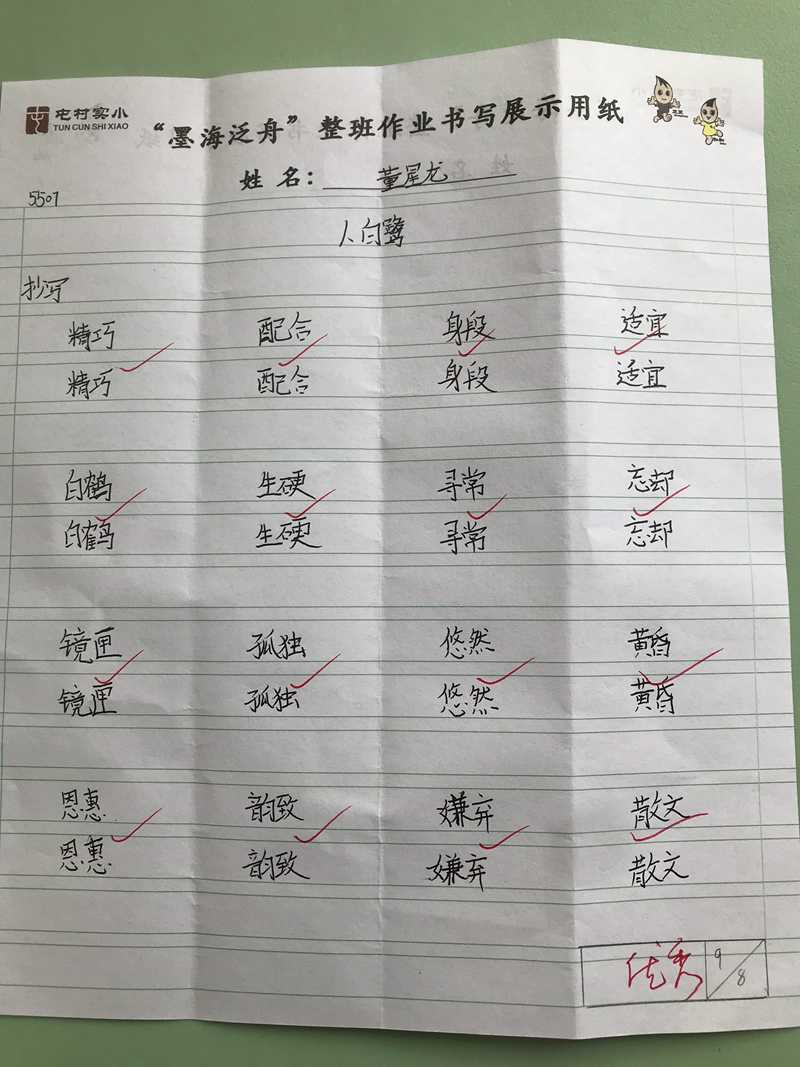 屯村实小
TUN CUN SHI XIAO
“墨海泛舟”整班作业书写展示用纸
姓 名： 董犀龙
5507
1、白鹭
抄写
精巧 配合 身段 适宜
精巧 配合 身段 适宜
白鹤 生硬 寻常 忘却
白鹤 生硬 寻常 忘却
镜匣 孤独 悠然 黄昏
镜匣 孤独 悠然 黄昏
恩惠 韵致 嫌弃 散文
恩惠 韵致 嫌弃 散文
优秀 9/8